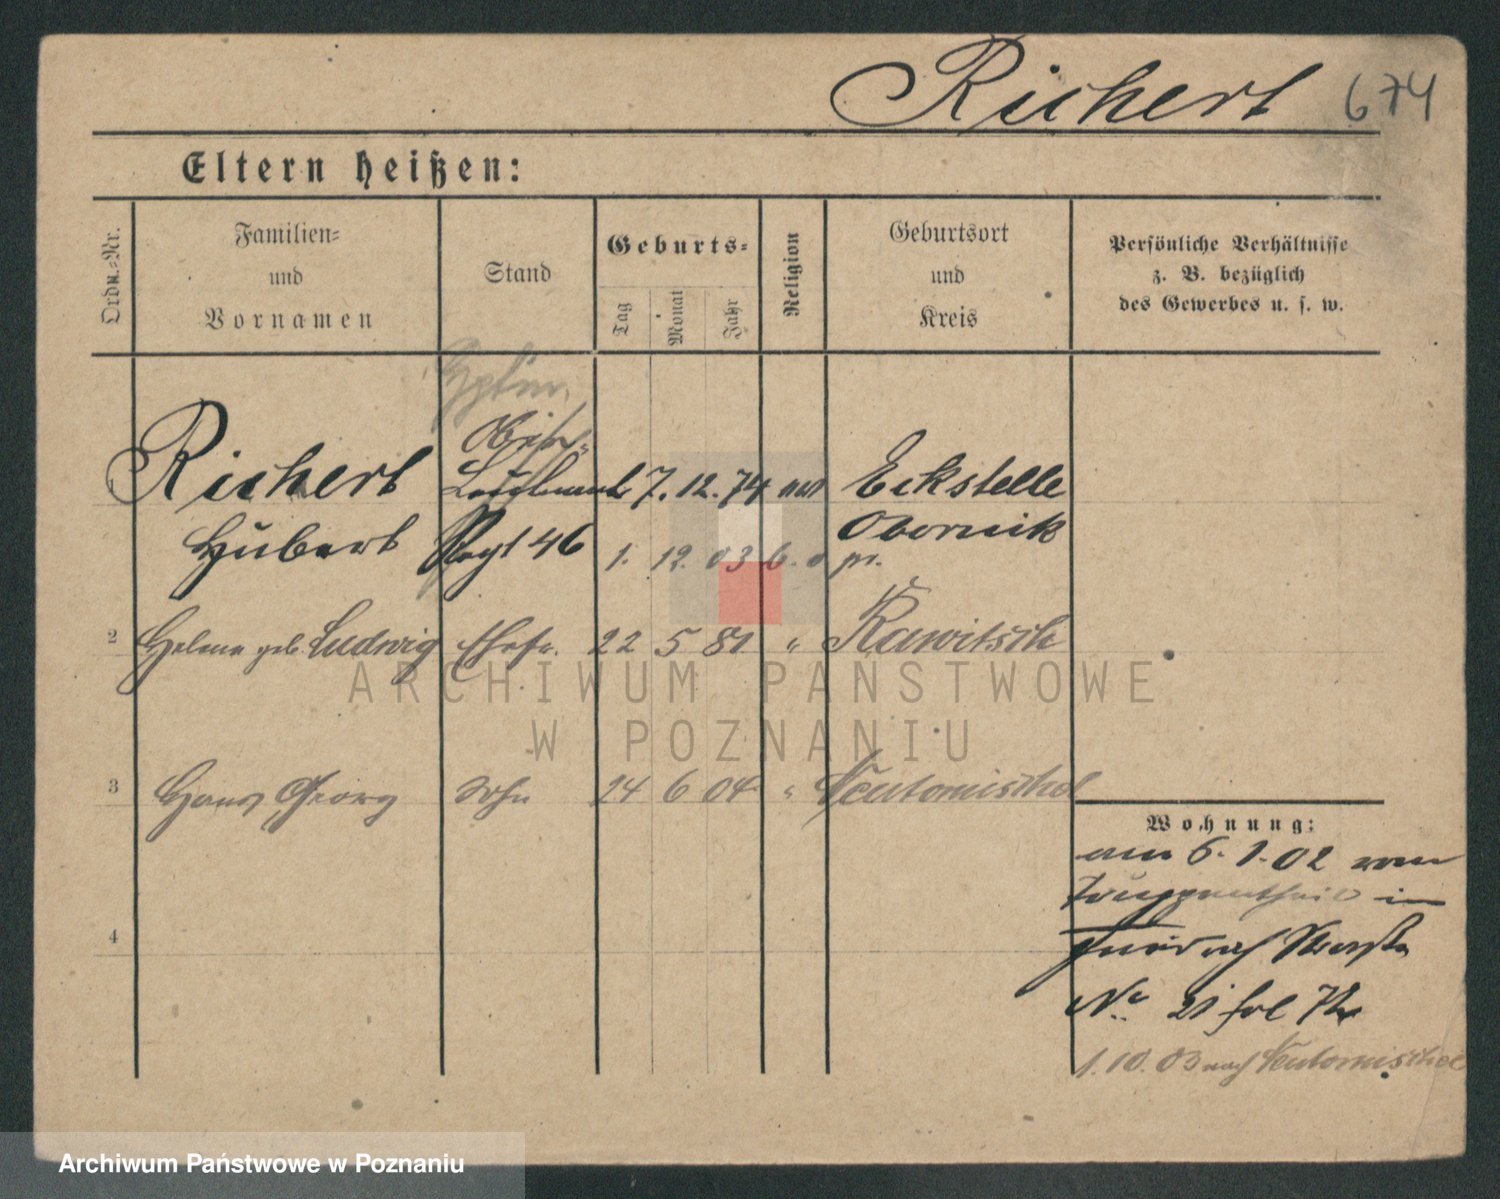 Richert 674
Eltern heißen:
Ordn.-Nr.
Familien-
und
Vornamen
Stand
Geburts-
Tag
Monat
Jahr
Religion
Geburtsort
und
Kreis
Persönliche Verhältnisse
z. B. bezüglich
des Gewerbes u. s. w.
Richert 7. 12. 74 Eckstelle
Hubert Regt 46 Obornik
1. 12. 03
2 Helene geb. Ludwig Ehefr. 22 5 81 " Rawitsch
3 Hans Georg Sohn 24 6 04 " Neutomischel
4
Wohnung:
am 6. 1. 02 vom
Truppentheil in
No 21
1. 10. 03 nach Neutomischel
ARCHIWUM PAŃSTWOWE
W POZNANIU
Archiwum Państwowe w Poznaniu